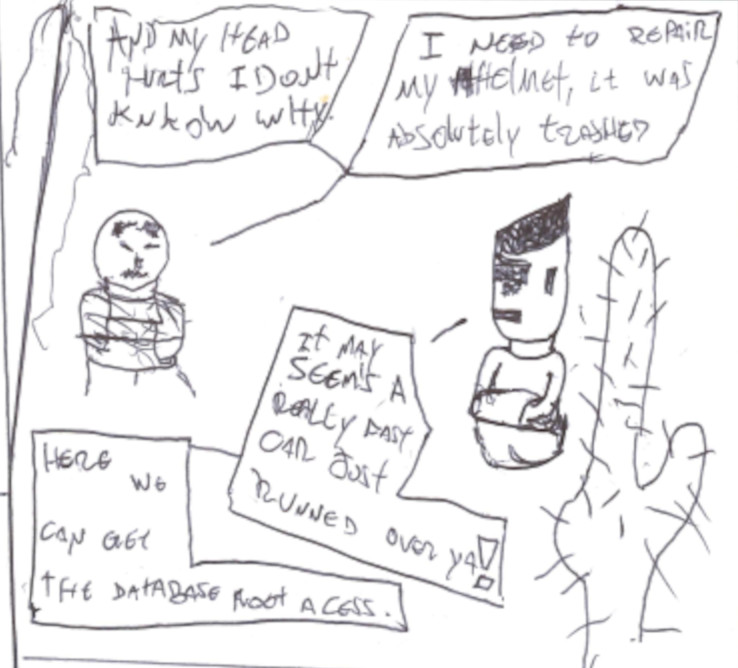 AND MY HEAD
HURTS I DONT
KNKOW WHY.
I NEED to REPAIR
MY HElMEt, it WAS
ABSOlUtEly tRASHED
It MAY
SEEMS A
REALLY FAST
CAR JUST
RUNNED OVER YA!
HERE
WE
CAN GET
THE DATABASE ROOT ACESS.